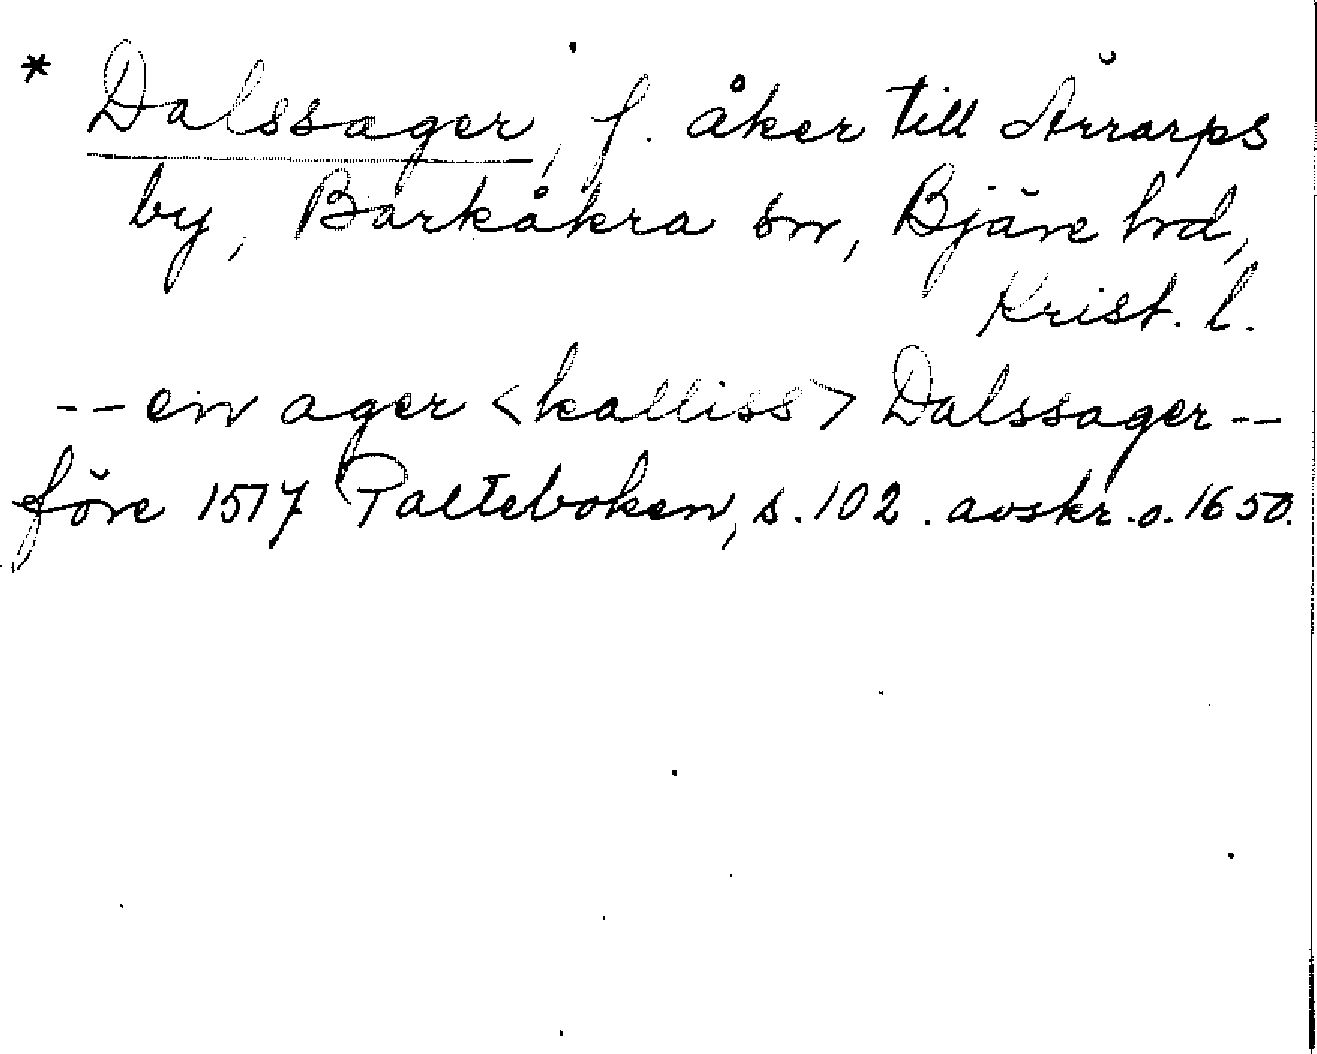 * Dalssager, f. åker till Ärrarps
by, Barkåkra sn, Bjäre hd,
Krist. l.
-- en ager <kalliss> Dalssager --
före 1517 Palteboken, s. 102. avskr. o. 1650.